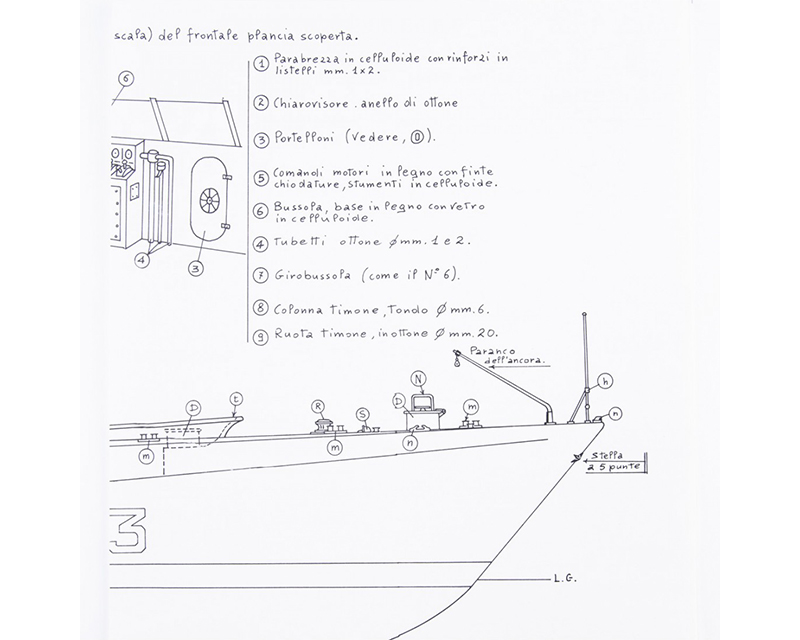 scala) del frontale plancia scoperta.
1 Parabrezza in celluloide con rinforzi in
listelli mm. 1x2.
2 Chiarovisore . anello di ottone
3 Portelloni (Vedere, D).
5 Comandi motori in legno con finte
chiodature, stumenti in celluloide.
6 Bussola, base in legno con vetro
in celluloide.
4 Tubetti ottone Ø mm. 1 e 2.
7 Girobussola (come il N° 6).
8 Colonna timone, Tondo Ø mm. 6.
9 Ruota timone, in ottone Ø mm. 20.
6
4
3
Paranco
dell'ancora.
N
h
D
t
R
S
D
m
n
m
m
n
Stella
a 5 punte
3
L.G.